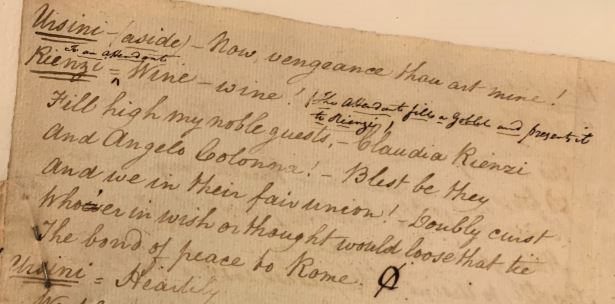 Ursini - (aside) - Now, vengeance thou art mine!
to an attendant
Rienzi = Wine - wine! (The Attendant fills a Goblet and presents it
to Rienzi)
Fill high my noble guests, - Claudia Rienzi
And Angelo Colonna! - Blest be they
And we in their fair union! - Doubly curst
Who e'er in wish or thought would loose that tie
The bond of peace to Rome.
Ursini = Heartily